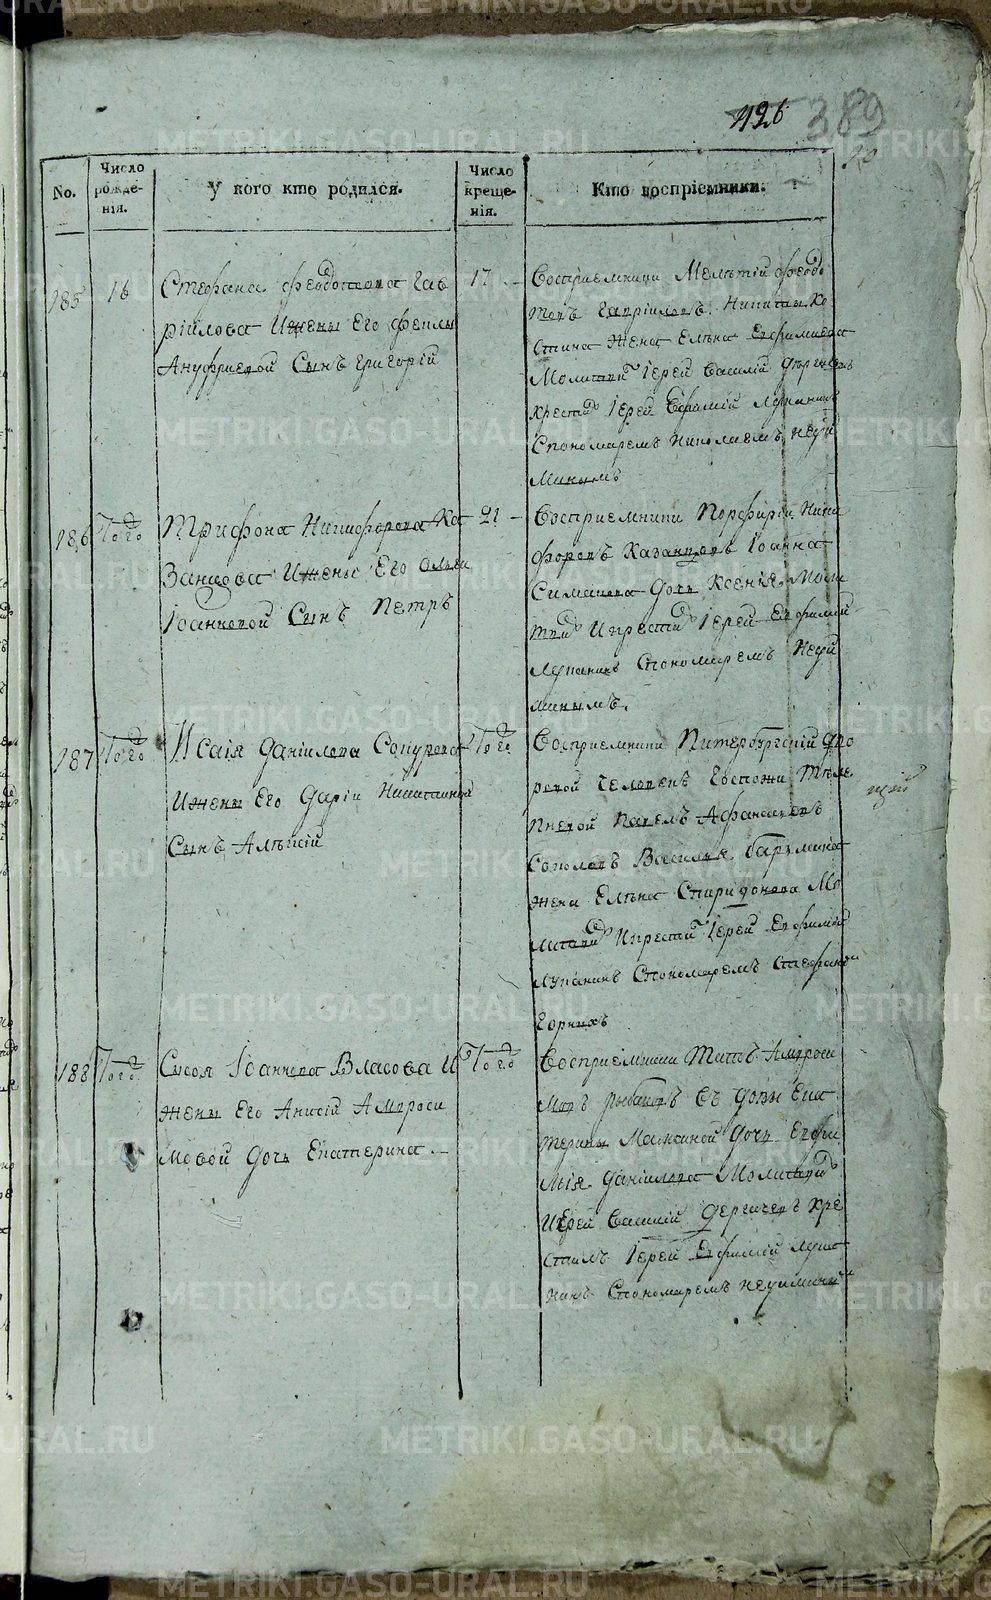 426 389
20
No.
Число рожде-нія.
У кого кто родился.
Число креще-нія.
Кто воспріемники.
185
16
Стефана Феодотова Гав
рійлова Ижены Его Феклы
Ануфриевой Сынъ Григорій
17
Восприемники Мелетій Федо
товъ Гаврійловъ Никиты Ко
стина Жена Елена Евфимиева
Молитвой Іерей Василій
крестил Іерей Евфимій Лупанинъ
Спономаремъ Николаемъ Неуй
минымъ
186
Того
Трифона Никифорова Ка
занцова Ижены Его
Іоанновой Сынъ Петръ
21
Восприемники Порфирій Ники
форовъ Казанцовъ Іоанна
Симанова Дочь Ксенія Моли
твил Икрестил Іерей Евфимій
Лупанинъ Спономаремъ Неуй
минымъ.
187
Того
Исаія Данійлова Сокурова
Ижены Его Даріи Никитиной
Сынъ Алексій
Того
Восприемники Питербургскій дво
ровой Человекъ Госпожи
Павелъ Афанасьевъ
Соколовъ Василья
жена Елена Спиридонова Мо
литвил Икрестил Іерей Евфимій
Лупанинъ Спономаремъ Стефаномъ
Горныхъ
188
Того
Сысоя Іоаннова Власова И
жены Его Анисіи Амброси
мовой Дочь Екатерина
Того
Восприемники Титъ Амброси
мовъ Рыбаковъ Вдовы Ека
терины Дочь Евфи
мія Данійлова Молитвил
Иерей Василій Дергачевъ Кре
стилъ Іерей Евфимій Лупа
нинъ Спономаремъ Неуйминымъ
METRIKI.GASO-URAL.RU